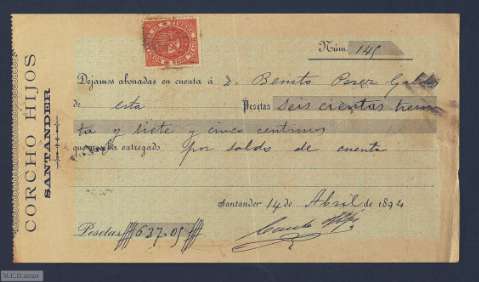 CORCHO HIJOS
SANTANDER
Núm. 145
Dejamos abonadas en cuenta á D. Benito Perez Galdos
de esta Pesetas Seis cientas trein
ta y siete y cinco centimos
que nos ha entregado por saldo de cuenta
Santander 14 de Abril de 1894
Pesetas 637.05